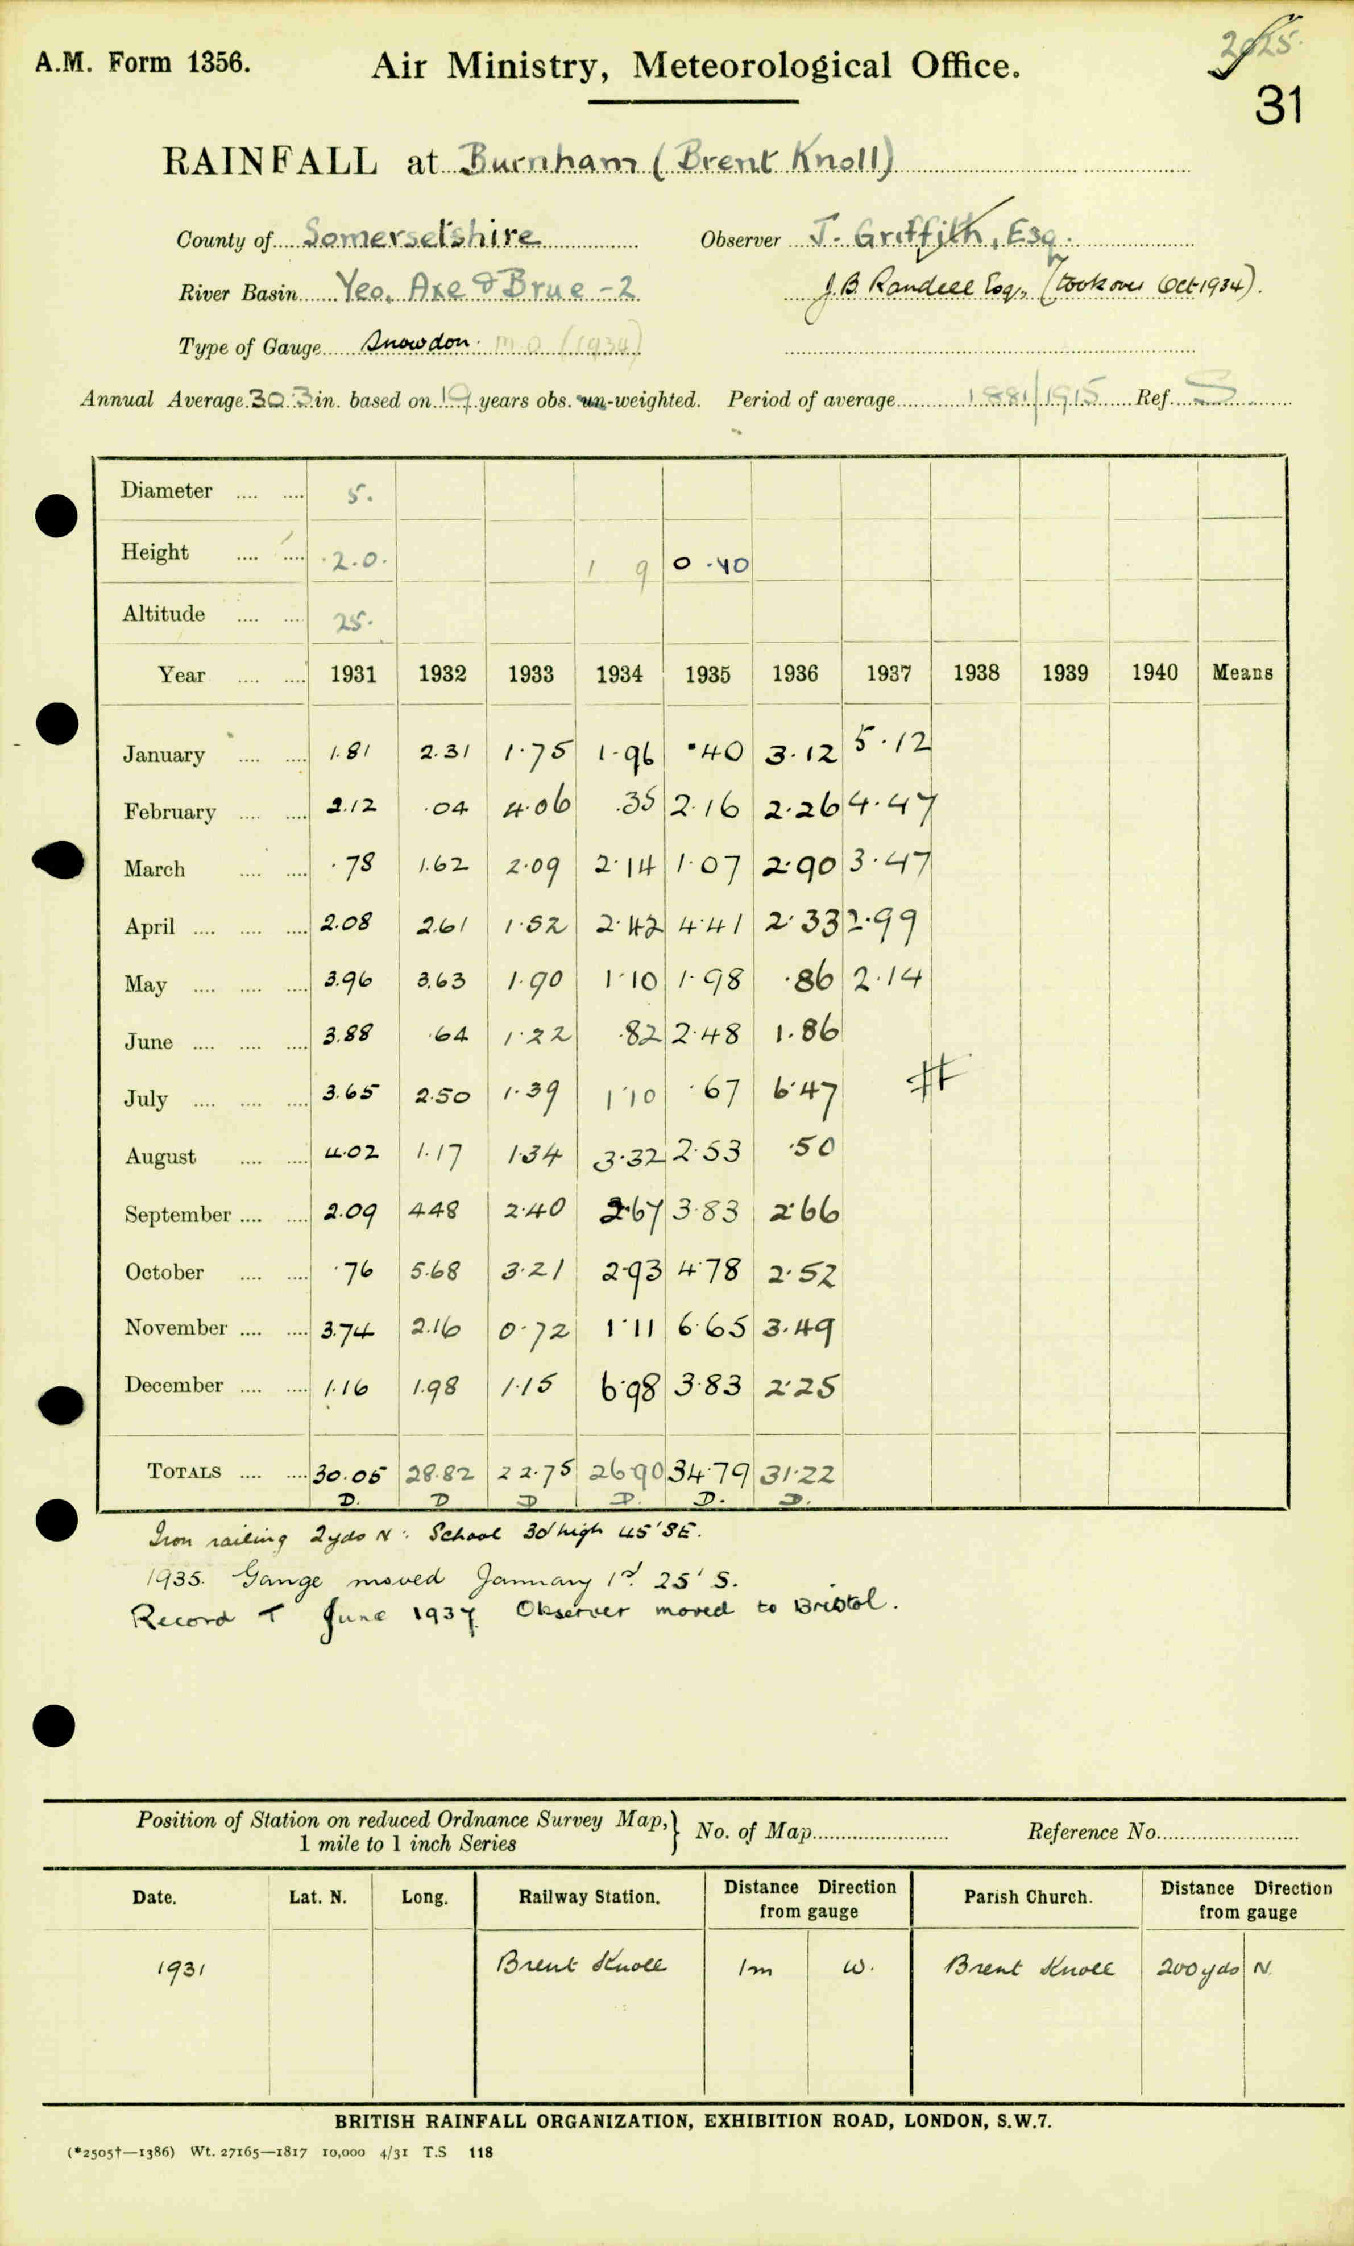 2025.
A.M. Form 1356. Air Ministry, Meteorological Office.
31
RAINFALL at Burnham (Brent Knoll)
County of Somersetshire Observer J. Griffith, Esq.
River Basin Yeo, Axe & Brue - 2 J.B. Randell Esq., (took over Oct 1934).
Type of Gauge Snowdon. M.O (1934)
Annual Average 30.3 in. based on 19 years obs. un-weighted. Period of average 1881/1915 Ref. S
Diameter .... .... 5.
Height .... .... 2.0. 1 9 0 .40
Altitude .... .... 25.
Year .... .... 1931 1932 1933 1934 1935 1936 1937 1938 1939 1940 Means
January .... .... 1.81 2.31 1.75 1.96 .40 3.12 5.12
February .... .... 2.12 .04 4.06 .35 2.16 2.26 4.47
March .... .... .78 1.62 2.09 2.14 1.07 2.90 3.47
April .... .... .... 2.08 2.61 1.52 2.42 4.41 2.33 2.99
May .... .... .... 3.96 3.63 1.90 1.10 1.98 .86 2.14
June .... .... .... 3.88 .64 1.22 .82 2.48 1.86
July .... .... .... 3.65 2.50 1.39 1.10 .67 6.47
August .... .... 4.02 1.17 1.34 3.32 2.53 .50
September .... .... 2.09 4.48 2.40 2.67 3.83 2.66
October .... .... .76 5.68 3.21 2.93 4.78 2.52
November .... .... 3.74 2.16 0.72 1.11 6.65 3.49
December .... .... 1.16 1.98 1.15 6.98 3.83 2.25
TOTALS .... .... 30.05 28.82 22.75 26.90 34.79 31.22
D. D D D. D. D.
Iron railing 2yds N: School 30' high 45' SE.
1935. Gauge moved January 1st. 25' S.
Record T June 1937. Observer moved to Bristol.
Position of Station on reduced Ordnance Survey Map, 1 mile to 1 inch Series } No. of Map Reference No.
Date. Lat. N. Long. Railway Station. Distance Direction from gauge Parish Church. Distance Direction from gauge
1931 Brent Knoll 1m W. Brent Knoll 200yds N.
BRITISH RAINFALL ORGANIZATION, EXHIBITION ROAD, LONDON, S.W.7.
(*2505†—1386) Wt. 27165—1817 10,000 4/31 T.S 118